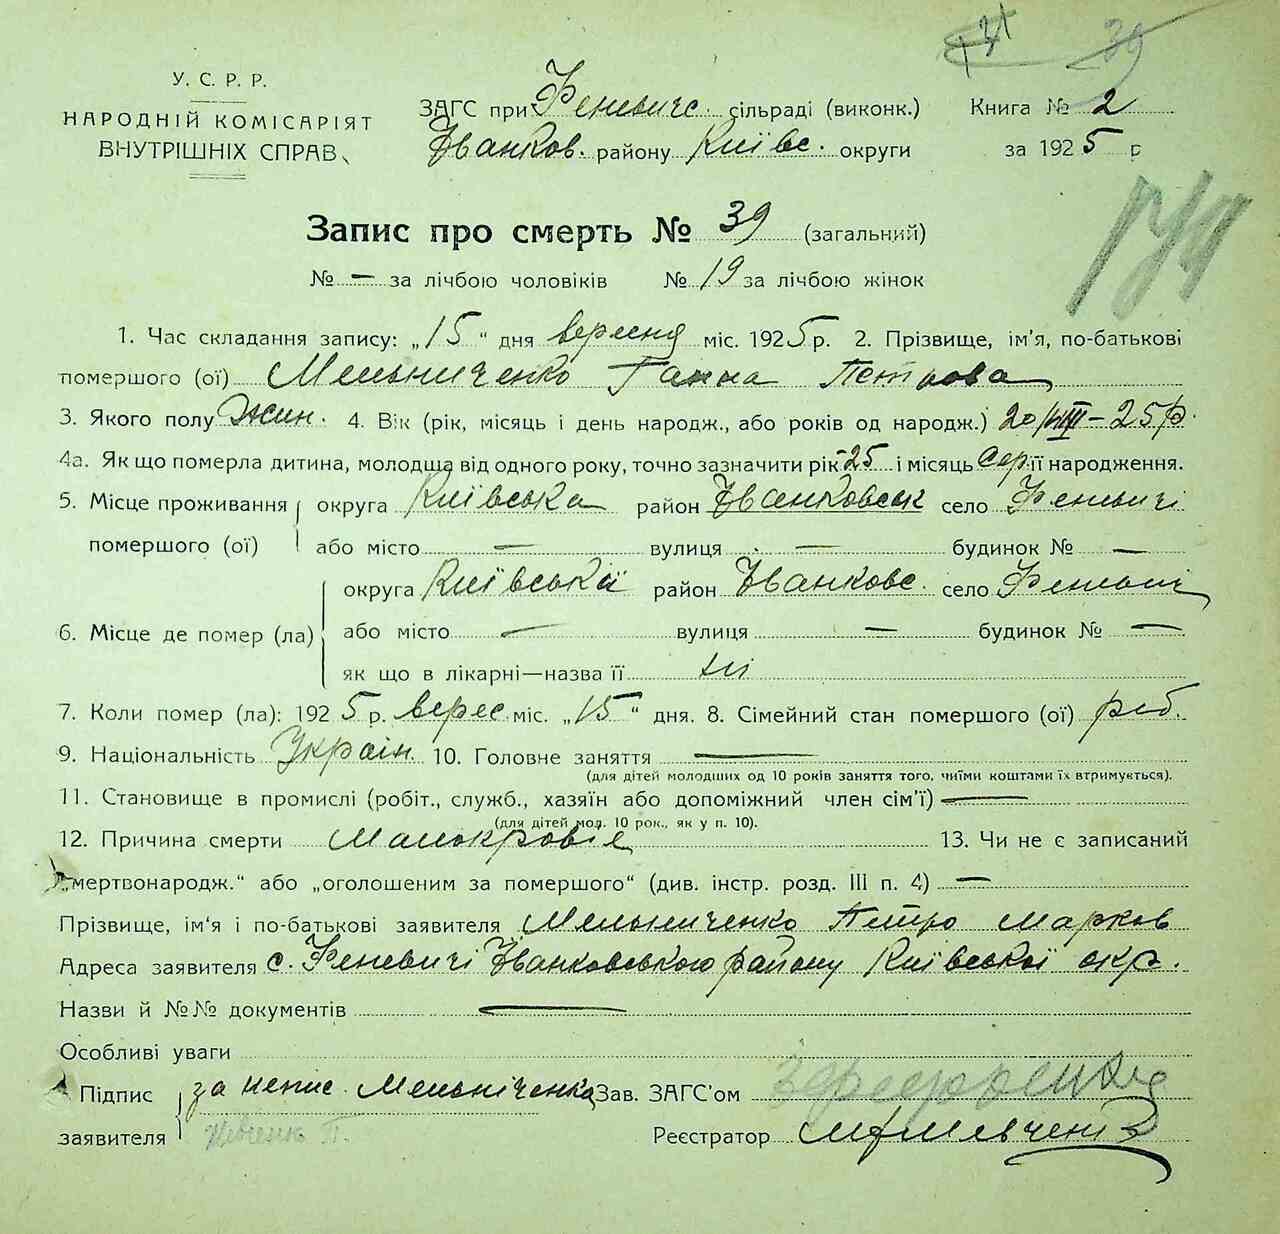 39
У. С. Р. Р.
НАРОДНІЙ КОМІСАРІЯТ
ВНУТРІШНІХ СПРАВ
ЗАГС при Феневичс. сільраді (виконк.) Книга № 2
Іванков. району Київс. округи за 1925 р
Запис про смерть № 39 (загальний)
№ — за лічбою чоловіків № 19 за лічбою жінок
1. Час складання запису: „15“ дня вересня міс. 1925 р. 2. Прізвище, ім'я, по-батькові
помершого (ої) Мельниченко Ганна Петрова
3. Якого полу Жін. 4. Вік (рік, місяць і день народж., або років од народж.) 20/VIII – 25 р.
4а. Як що померла дитина, молодша від одного року, точно зазначити рік 25 і місяць Сер. її народження.
5. Місце проживання помершого (ої) округа Київська район Іванковськ село Феневичі
або місто — вулиця — будинок № —
6. Місце де помер (ла) округа Київська район Іванковс. село Феневичі
або місто — вулиця — будинок № —
як що в лікарні—назва її ні
7. Коли помер (ла): 1925 р. верес. міс. „15“ дня. 8. Сімейний стан помершого (ої)
9. Національність Україн. 10. Головне заняття —
(для дітей молодших од 10 років заняття того, чиїми коштами їх втримується).
11. Становище в промислі (робіт., служб., хазяїн або допоміжний член сім'ї) —
(для дітей мол. 10 рок., як у п. 10).
12. Причина смерти Малокровіє 13. Чи не є записаний
„мертвонародж.“ або „оголошеним за помершого“ (див. інстр. розд. III п. 4) —
Прізвище, ім'я і по-батькові заявителя Мельниченко Петро Марков
Адреса заявителя с. Феневичі Іванковського району Київської окр.
Назви й №№ документів —
Особливі уваги
Підпис заявителя за непис. Мельніченка
Зав. ЗАГС'ом
Реєстратор